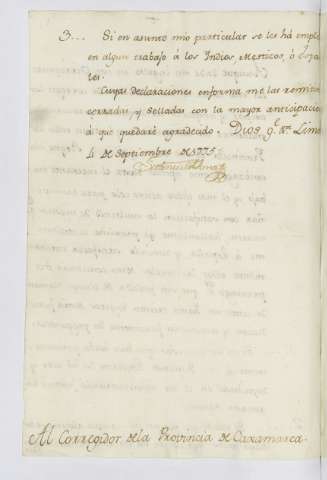 3... Si en asunto mio particular se les há emple
en algun trabajo á los Indios, Mestizos, ó Espa
les.
Cuyas declaraciones en forma me las remitirá
cerradas y selladas con la mayor anticipacion
á que quedaré agradecido. Dios g.e Lima
4 de Septiembre de 1775
Al Corregidor de la Provincia de Caxamarca.